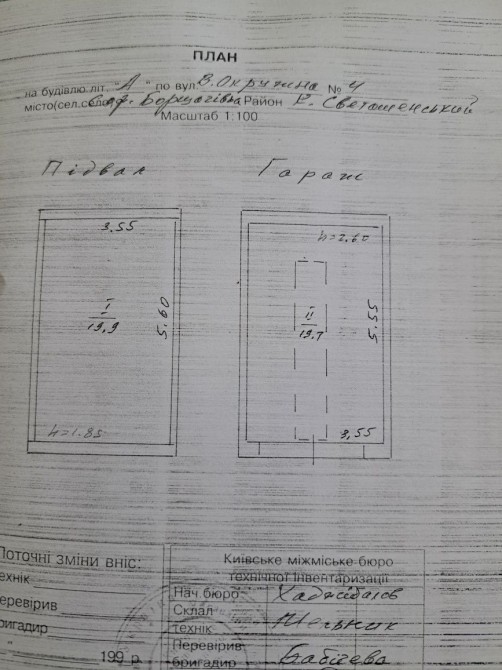 ПЛАН
на будівлю літ. "А" по вул. В. Окружна № 4
місто(сел.село) Соф. Борщагівка Район К. Святошенський
Масштаб 1:100
Підвал Гараж
3,55
h=2,60
I
19,9
5.60
II
19,7
5,55
h=1.85
3,55
Поточні зміни вніс:
Київське міжміське бюро
технічної інвентаризації
технік
Нач.бюро
перевірив
Склал
бригадир
технік Мельник
Перевірив
199 р.
бригадир Бабічева